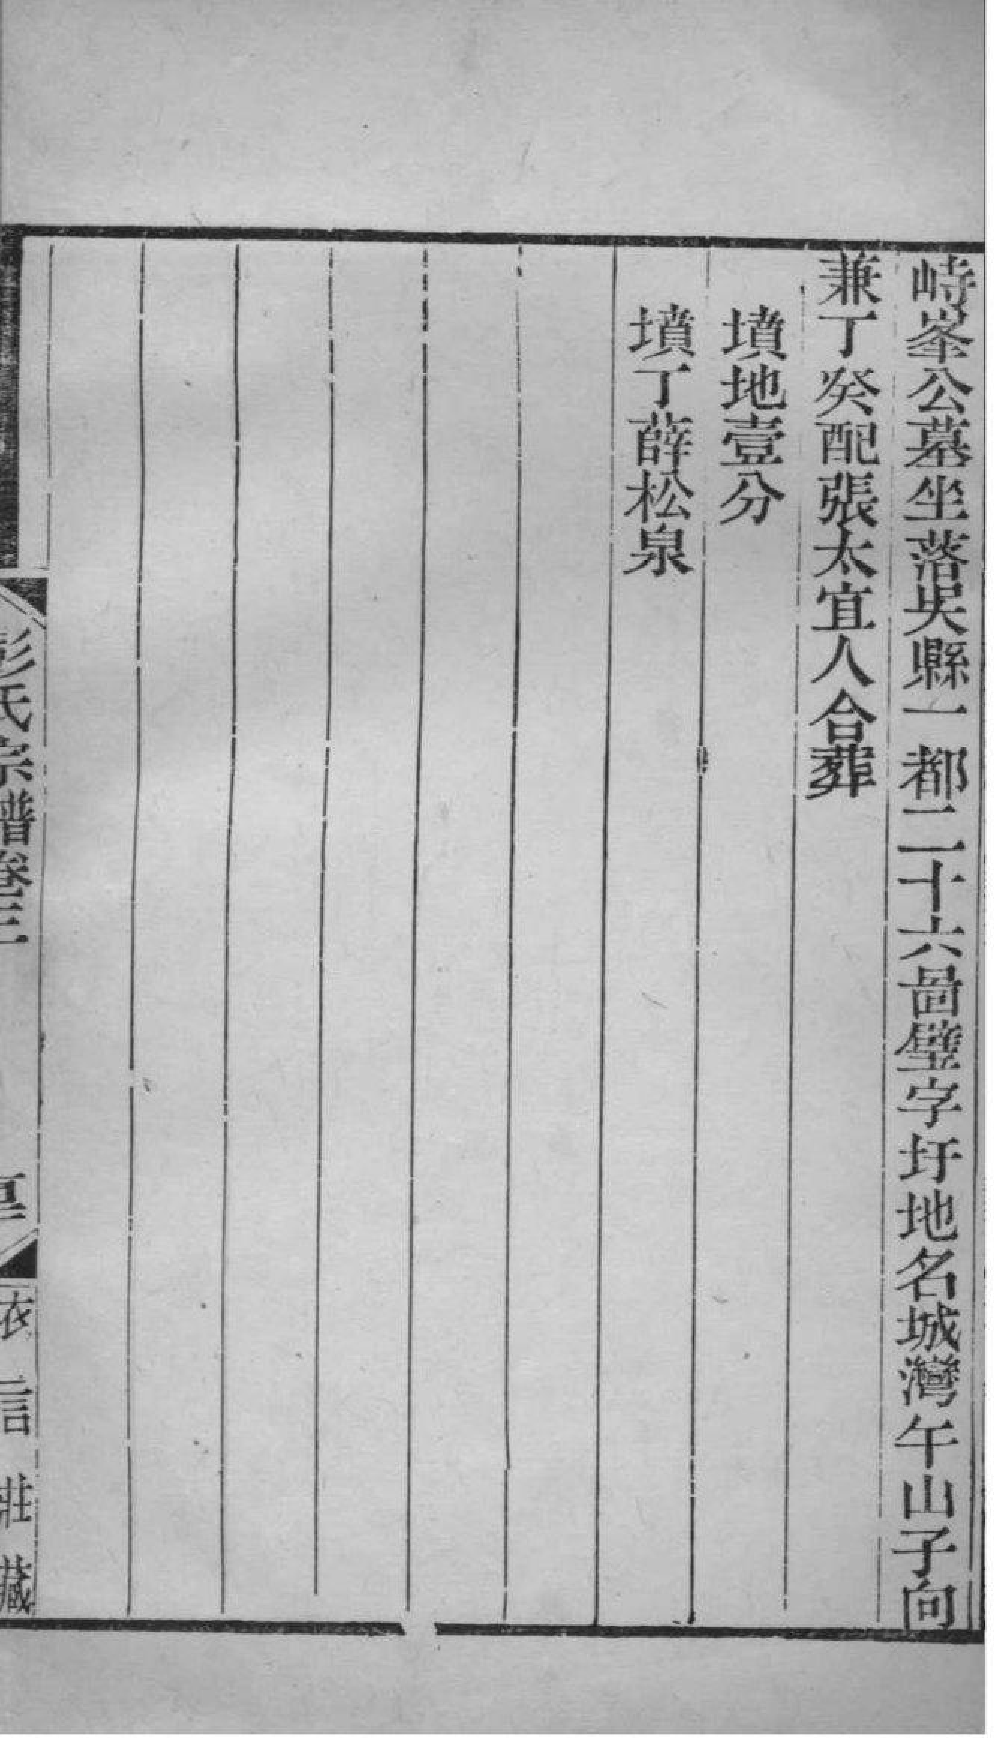 峙峯公墓坐落吳縣一都二十六啚璧字圩地名城灣午山子向
兼丁癸配張太宜人合葬
墳地壹分
墳丁薛松泉
彭氏宗譜卷三
衣言莊藏